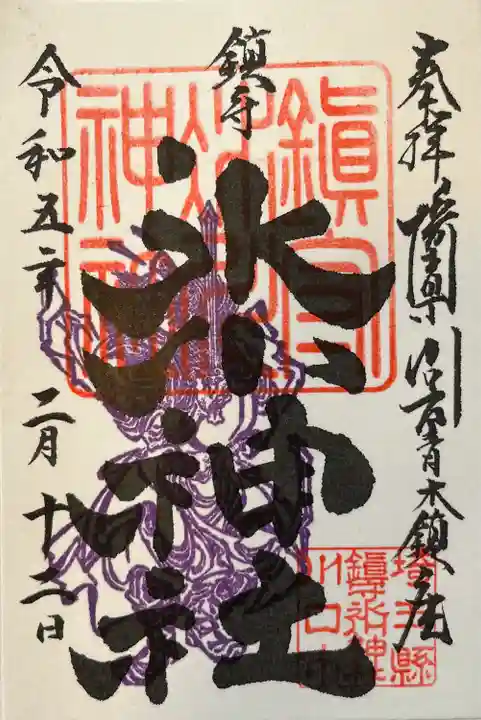 奉拝 埼玉県川口市青木鎮座
鎮守
氷川神社
令和五年 二月十二日
鎮守
氷川
神社
埼玉縣
川口市